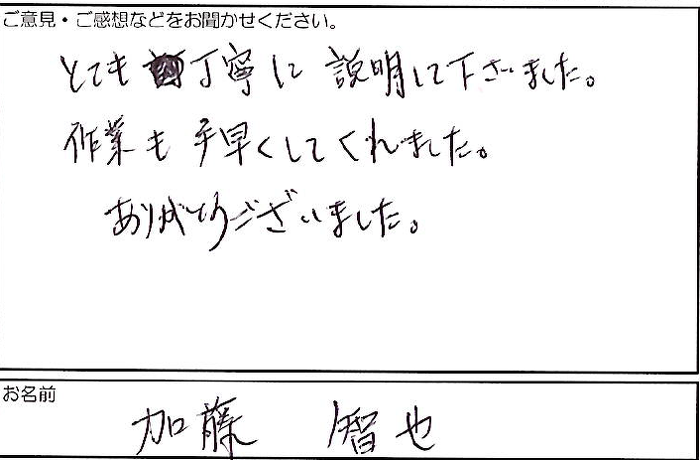 ご意見・ご感想などをお聞かせください。
とても丁寧に説明して下さいました。
作業も手早くしてくれました。
ありがとうございました。
お名前
加藤 智也